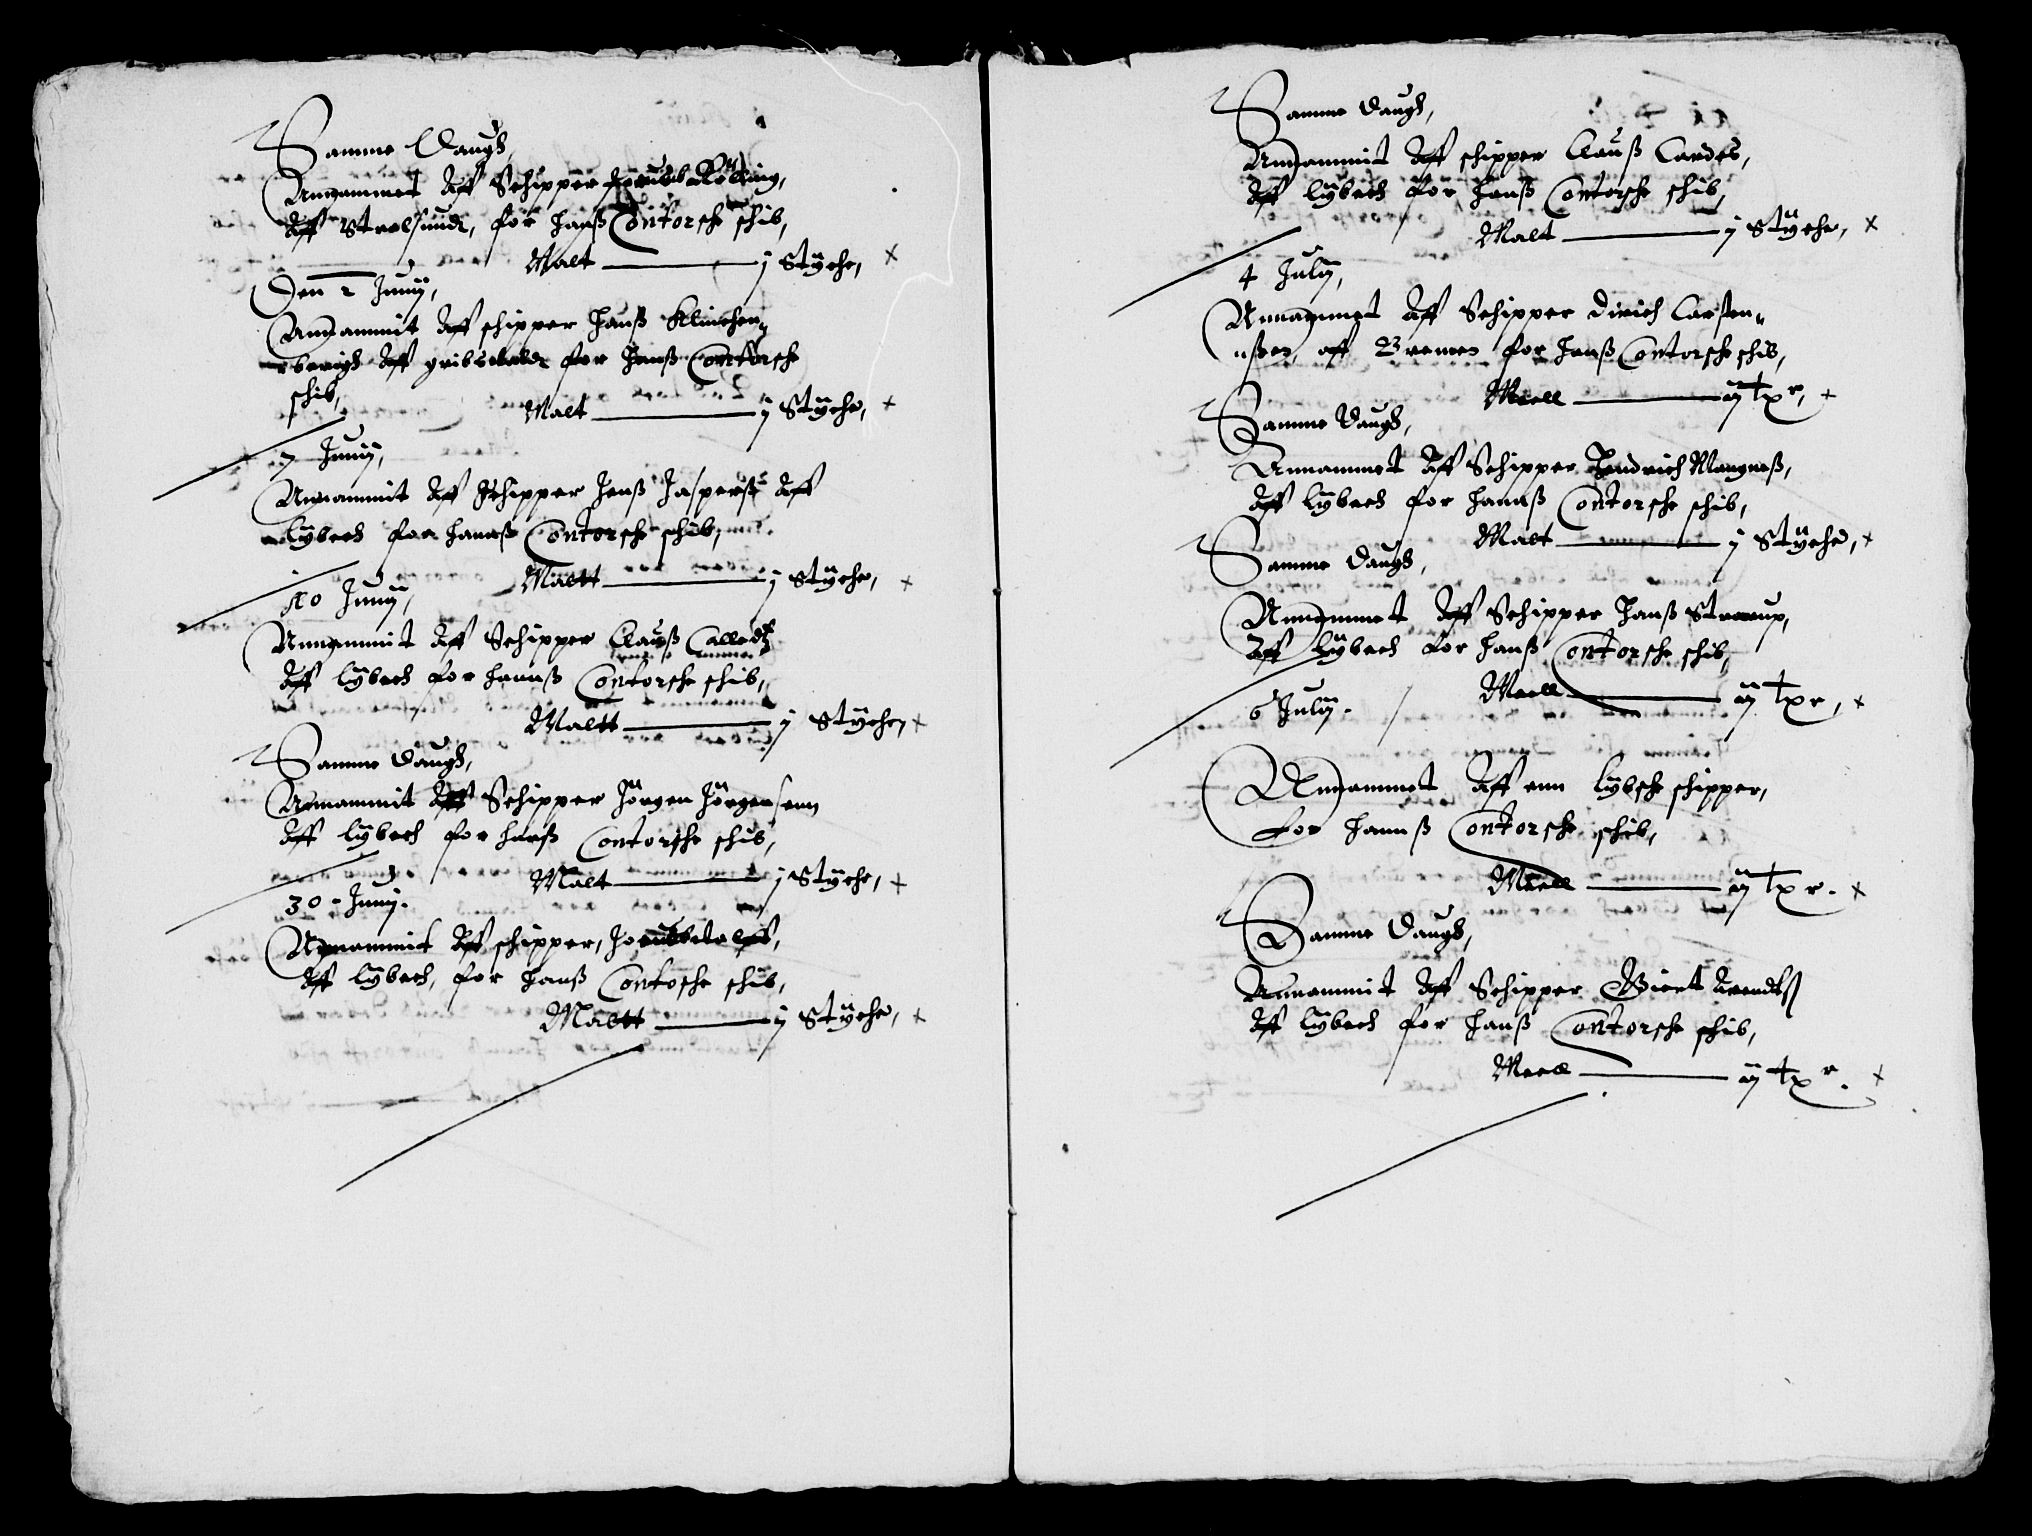 Samme Daugh,
Annammet Aff Schipper Rölling,
Aff Stralsundt, for Hanß Contorsche schib,
Malt j Stÿche, +
Den 2 Junij,
Annammit Aff schipper Hanß Klinchen„
berigh Aff gribswaldt for Hanß Contorsche
schib,
Malt j Stÿche, +
7 Junij,
Annammit Aff Schipper Jenß Jasperß Aff
Lÿbech for Hannß Contorsche schib,
Maltt j Stÿche, +
10 Junij,
Annammit Aff Schipper Clauß
Aff Lÿbech for Hannß Contorsche schib,
Maltt j Stÿche, +
Samme Daugh,
Annammit Aff Schipper Jörgen Jörgensenn
Aff Lÿbech for Hanß Contorsche schib,
Malt j Stÿche, +
30 Junij.
Annammit Aff schipper,
Aff Lÿbech, for Hanß Contosche schib,
Maltt j Stÿche, +
Samme Daugh,
Annammit Aff schipper Clauß Cardes,
Aff Lÿbech for Hanß Contorsche schib,
Malt j Stÿche, +
4 Julij,
Annammet Aff Schipper Dirich Carsten„
ußen, aff Bremen for Hanß Contorsche schib,
Meell ij +
Samme Daugh,
Annammet Aff Schipper Hendrich Mangneß,
Aff Lÿbech for Hannß Contorsche schib,
Malt j Stÿche, +
Samme Daugh,
Annammet Aff Schipper Hanß
Aff Lÿbech for Hanß Contorsche schib,
Meell ij +
6 Julij.
Annammet Aff enn Lÿbsche schipper,
for Hannß Contorsche schib,
Meell ij +
Samme Daugh,
Annammit Aff Schipper Giert Arendtß
Aff Lÿbech for Hanß Contorsche schib,
Meell ij +